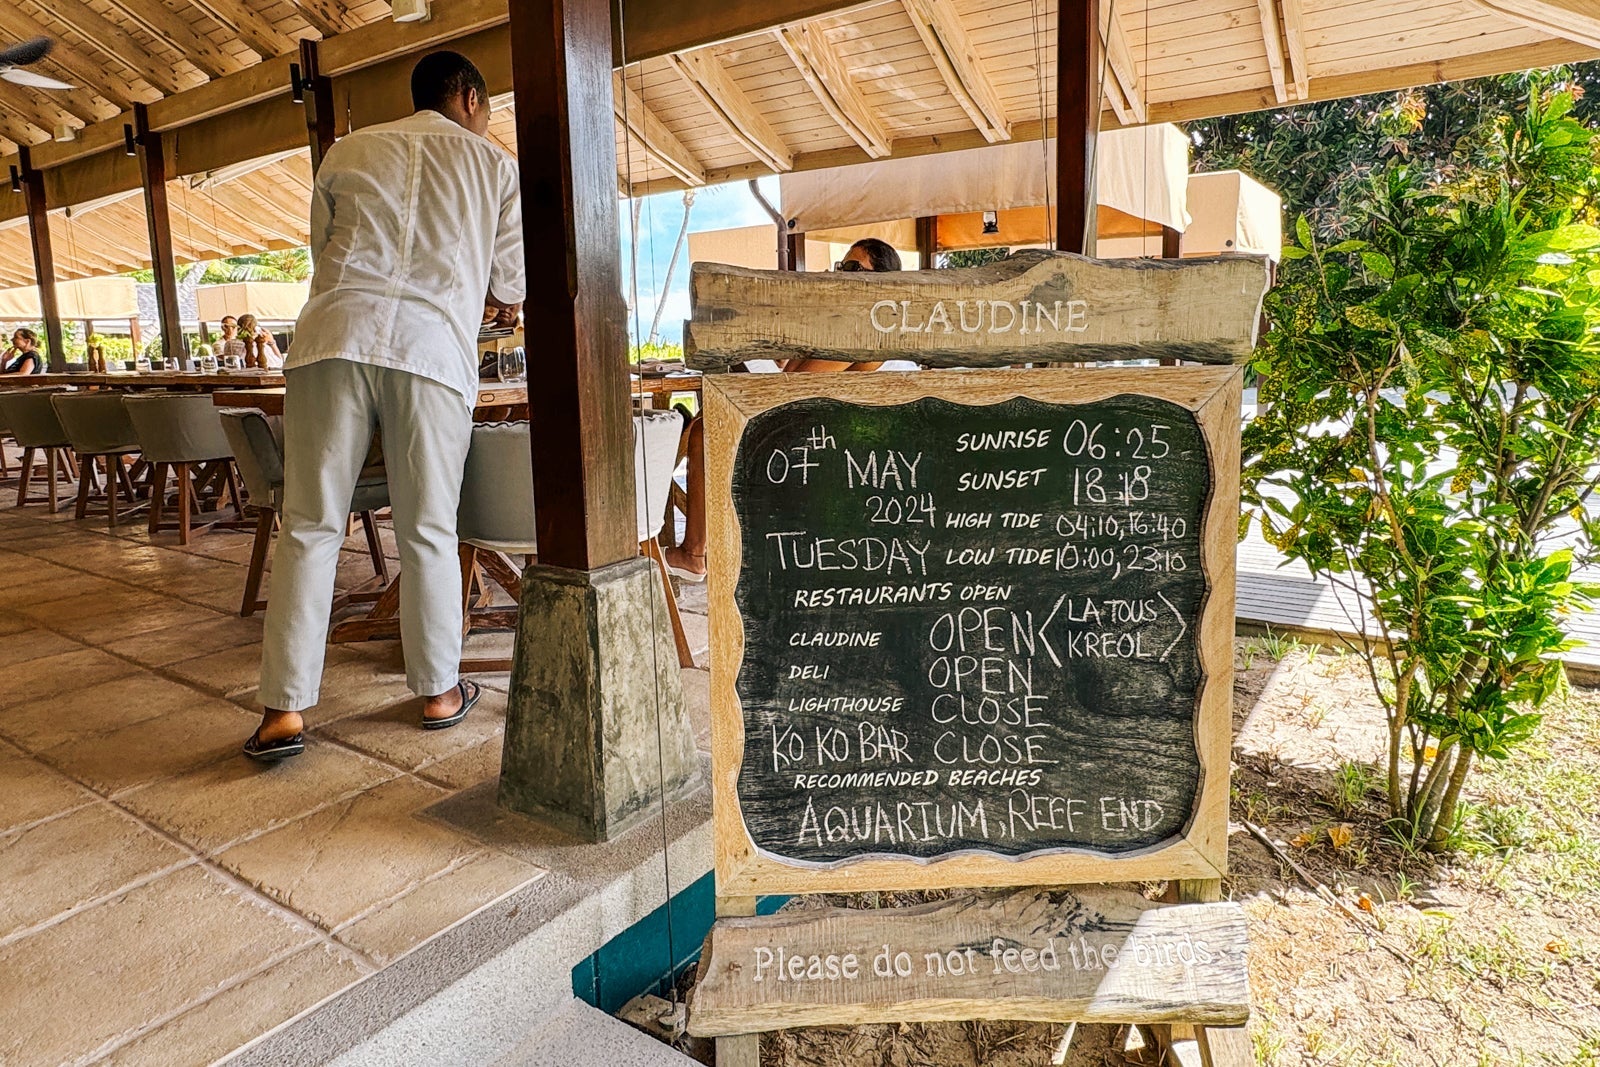 CLAUDINE
07th MAY
2024
TUESDAY
SUNRISE 06:25
SUNSET 18:18
HIGH TIDE 04:10, 16:40
LOW TIDE 10:00, 23:10
RESTAURANTS OPEN
CLAUDINE OPEN <LA TOUS KREOL>
DELI OPEN
LIGHTHOUSE CLOSE
KO KO BAR CLOSE
RECOMMENDED BEACHES
AQUARIUM, REEF END
Please do not feed the birds